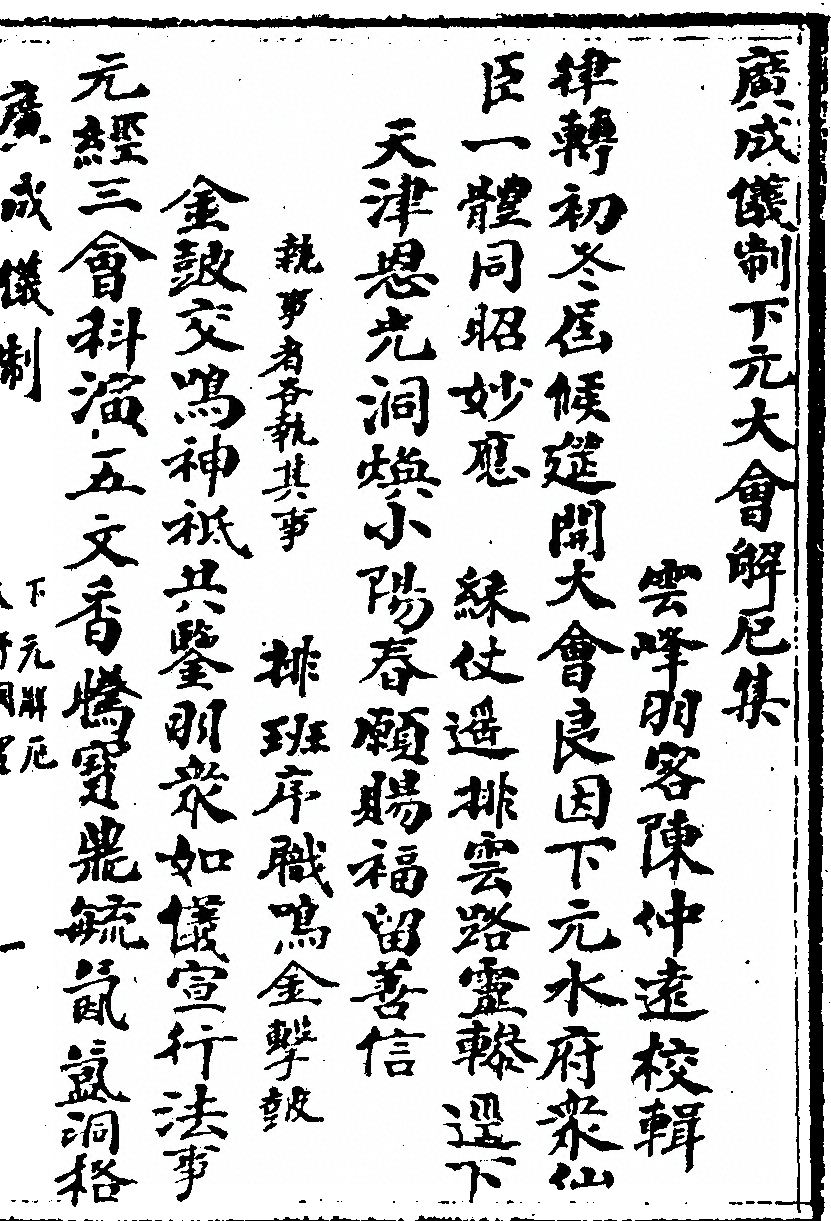 廣成儀制下元大會解厄集
雲峰羽客陳仲遠校輯
律轉初冬屆候筵開大會良因下元水府眾仙
臣一體同昭妙應 綵仗遥排雲路靈轇遥下
天津恩光洞煥小陽春願賜福留善信
執事者各執其事 排班序職鳴金擊皷
金皷交鳴神祗共鑒羽衆如儀宣行法事
元經三會科演五文香騰寶鼎毓氤氳洞格
廣成儀制
下元解厄
一